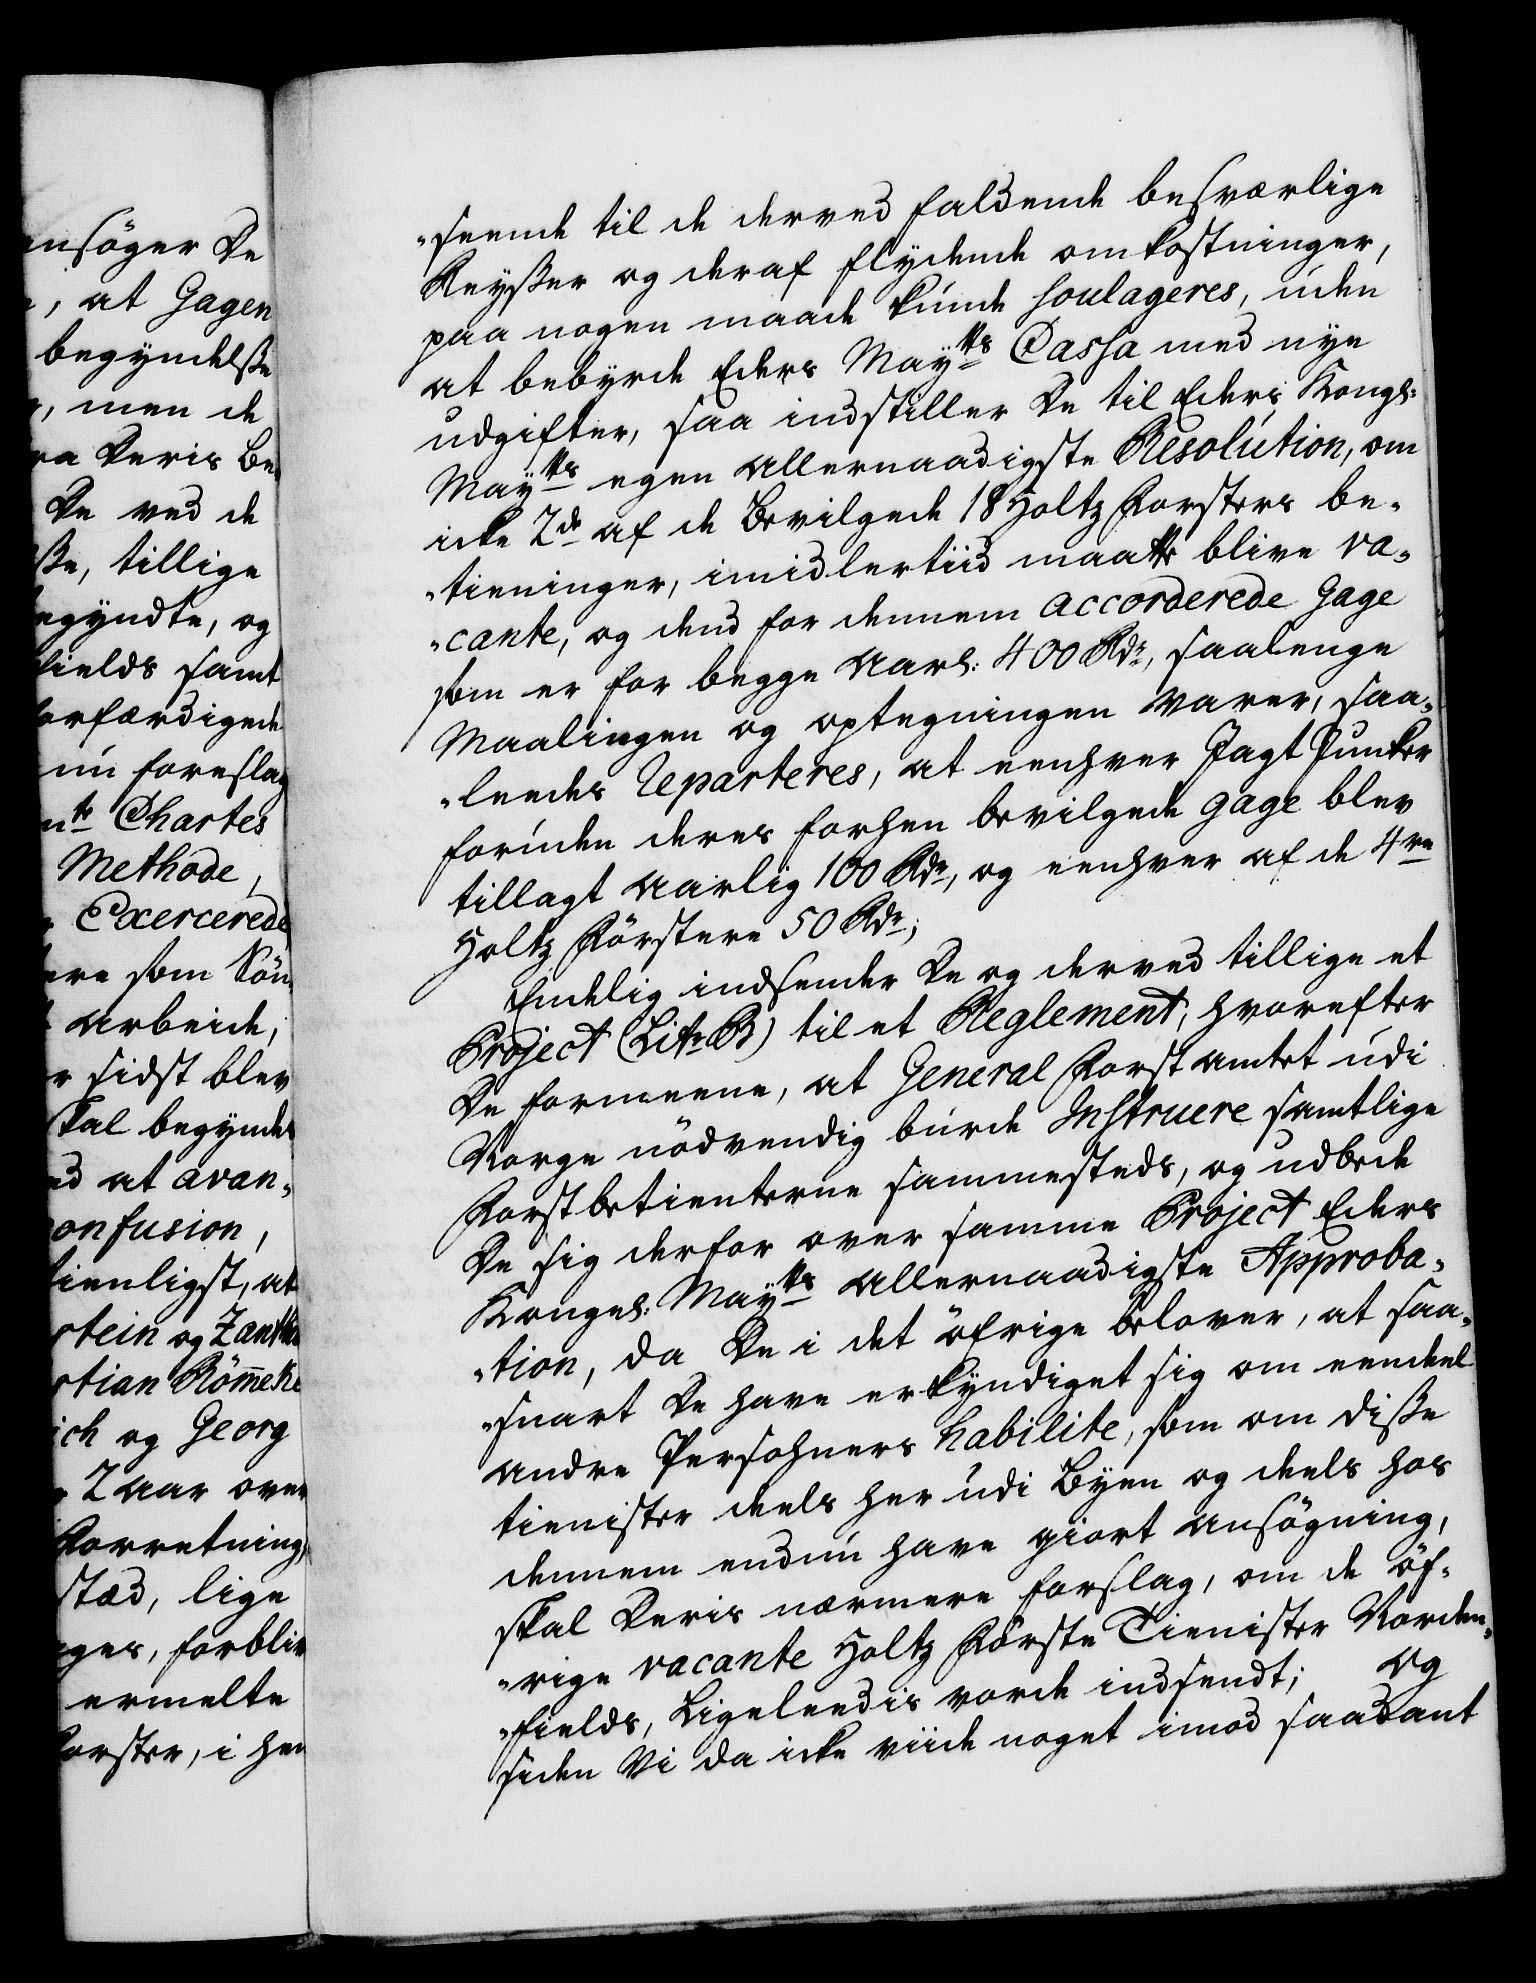 ansöger De
, at Gagen
begyndelsse
, men de
ra Deris be„
De ved de
sse, tillige
egyndte, og
fields samt
orfærdigede
nú foreslag
nte Chartes
Methode,
Exercerede
ere som kön„
arbeide,
r sidst blev
skal begyndes
ed at avan„
onfusion,
tienligst, at
rtein og Zanthi
stian Röm̅eke
ich og Georg
2 aar over
Forretning,
stæd, lige
ges, forbliv
ermelte
Forster, i hen
„seende til de derved faldende besværlige
Reysser og deraf flydende omkostninger,
paa nogen maade kúnde soulageres, úden
at bebyrde Eders Maytts Cassa med nye
udgifter, saa indstiller De til Eders Kongl:
Maytts egen allernaadigste Resolútion, om
icke 2de af de bevilgede 18 Holtz Forsters be„
„tieninger, imidlertiid maatte blive va„
„cante, og dend for dennem accorderede gage
som er for begge aarl: 400 Rdr, saalenge
Maalingen og optegningen varer, saa„
„leedes reparteres, at eenhver Jagt Junker
forúden deres forhen bevilgede gage blev
tillagt aarlig 100 Rdr, og eenhver af de 4re
Holtz Förstere 50 Rdr;
Endelig indsender De og derved tillige et
Project (Litr B) til et Reglement, hvorefter
De formeene, at General Forst amtet údi
Norge nödvendig búrde Instruere samtlige
Forstbetienterne sammesteds, og udbede
De sig derfor over samme Project Eders
Kongel: Maytts allernaadigste Approba„
„tion, da De i det öfrige belover, at saa„
„snart De have erkyndiget sig om eendeel
andre Persohners habilite, som om disse
tienister deels her údi Byen og deels hos
dennem endnú have giort ansögning,
skal Deris nærmere forslag, om de öf„
„rige vacante Holtz Förste Tienister Norden„
„fields, Ligeleedis vorde indsendt; og
siden Vi da icke viide noget imod saadant